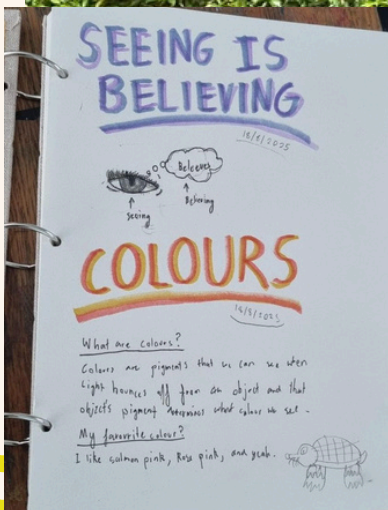 SEEING IS
BELIEVING
18/8/2025
Believe
Seeing
Believing
COLOURS
18/8/2025
What are colours?
Colours are pigments that we can see when
light bounces off from an object and that
object's pigment determines what colour we see.
My favourite colour?
I like salmon pink, Rose pink, and yeah.